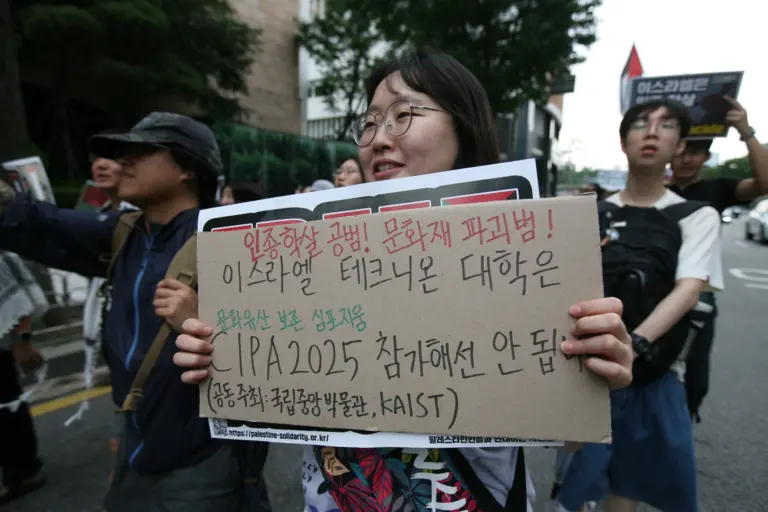 인종학살 공범! 문화재 파괴범!
이스라엘 테크니온 대학은
문화유산 보존 심포지움
CIPA2025 참가해선 안 됩
(공동주최: 국립중앙박물관, KAIST)
https://palestine-solidarity.or.kr/
이스라엘은